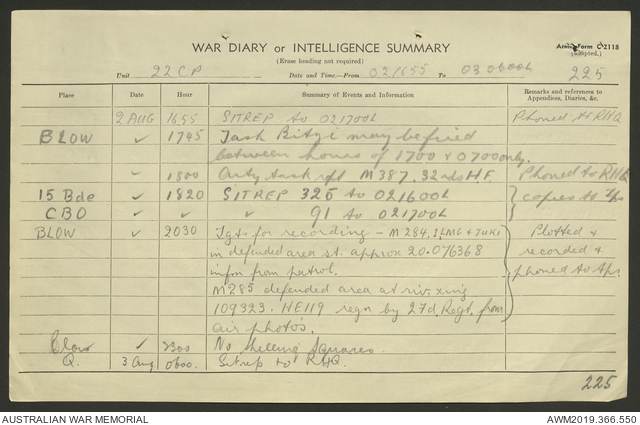 WAR DIARY or INTELLIGENCE SUMMARY
(Erase heading not required)
Army Form C 2118
(adapted.)
Unit 22 CP Date and Time—From 021655 To 030600L 225
Place Date Hour Summary of Events and Information Remarks and references to Appendices, Diaries, &c.
2 AUG 1655 SITREP to 021700L Phoned to RHQ
BLOW ✓ 1745 Task Bitzi may be fired
between hours of 1700 & 0700 only.
✓ 1800 Arty task rpt M387. 32 rds H.F. Phoned to RHQ
15 Bde ✓ 1820 SITREP 325 to 021600L copies to
CBO ✓ ✓ ✓ 91 to 021700L
BLOW ✓ 2030 Tgts for recording - M284, 1 LMG & JUKI Plotted &
in defended area st. approx 20.076368 recorded &
infm from patrol. phoned to
M285 defended area at riv. xing
109323. HE119 regn by 27d. Regt. from
air photos.
Blow ✓ 2300 No shelling Squares.
Q. 3 Aug 0600. Sitrep to RHQ.
225
AUSTRALIAN WAR MEMORIAL AWM2019.366.550